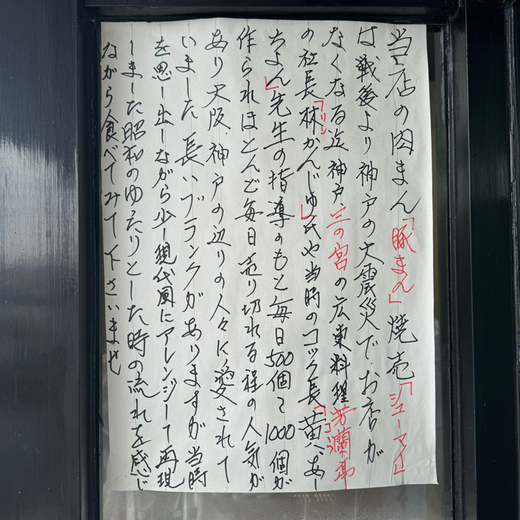 当店の肉まん「豚まん」焼売「シューマイ」
は戦後より神戸の大震災でお店が
なくなる迄神戸、三の宮の広東料理芳瀾亭
の社長「林かんじゅ」氏や当時のコック長「黄へあー
ちよん」先生の指導のもと毎日500個〜1000個が
作られほとんど毎日売り切れる程の人気が
あり大阪、神戸の辺りの人々に愛されて
いました 長いブランクがありますが当時
を思い出しながら少し現代風にアレンジして再現
しました昭和のゆたりとした時の流れを感じ
ながら食べてみて下さいませ
リン
コウ